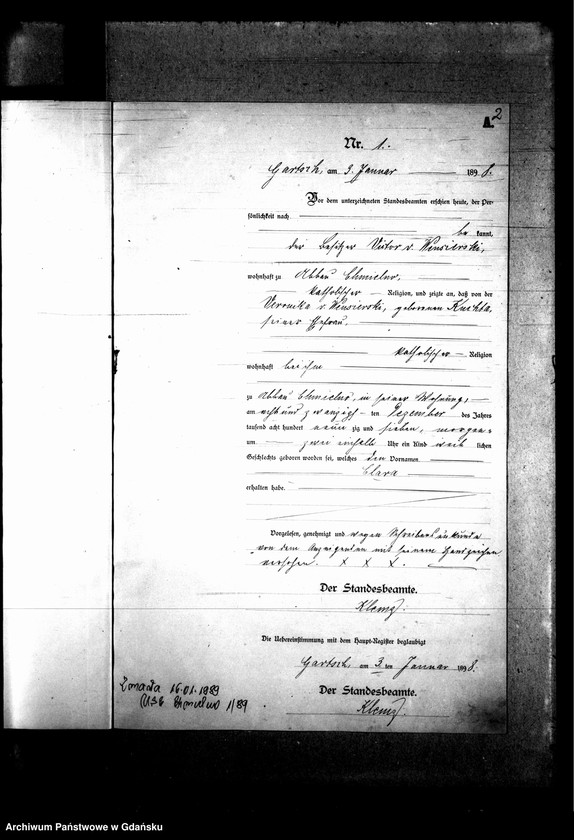 A. 2
Nr. 1.
Gartsch, am 3. Januar 1898.
Vor dem unterzeichneten Standesbeamten erschien heute, der Per-
sönlichkeit nach
be kannt,
der Besitzer Victor v. Wensierski,
wohnhaft zu Abbau Chmielno,
katholischer Religion, und zeigte an, daß von der
Veronika v. Wensierski, geborenen Kuchta,
seiner Ehefrau,
katholischer Religion
wohnhaft bei ihm
zu Abbau Chmielno, in seiner Wohnung,
am acht und zwanzigsten Dezember des Jahres
tausend acht hundert neun zig und sieben, morgens
um zwei einhalb Uhr ein Kind weib lichen
Geschlechts geboren worden sei, welches den Vornamen
Clara
erhalten habe.
Vorgelesen, genehmigt und wegen Schreibensunkunde
von dem Anzeigenden mit seinem Handzeichen
versehen. X X X.
Der Standesbeamte.
Klemz.
Die Uebereinstimmung mit dem Haupt-Register beglaubigt
Gartsch, am 3 ten Januar 1898.
Der Standesbeamte.
Klemz.
Zmarła 16.01.1989
USC Chmielno 1/89
Archiwum Państwowe w Gdańsku